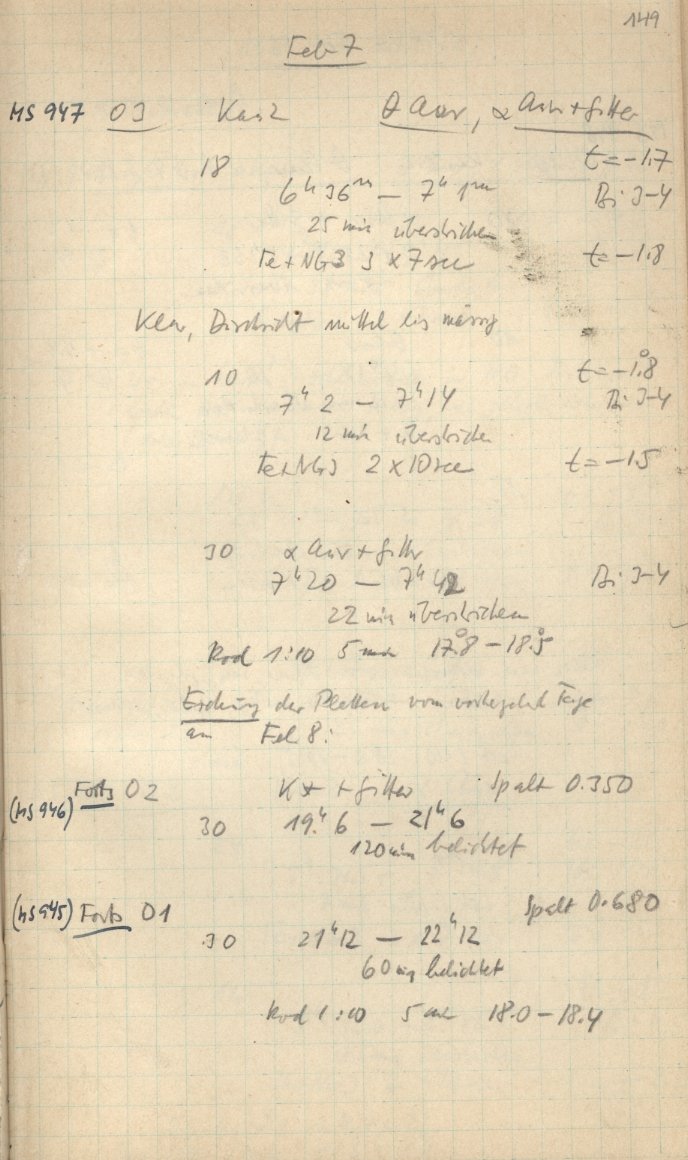 149
Feb 7
MS 947 03 Kas 2 θ Aur, α Aur + Gitter
18 t = -1.7
6h 36m — 7h 1m Bi 3-4
25 min überstrichen
Fe + NG3 3 x 7 sec t = -1.8
Klar, Durchsicht mittel bis mässig
10 t = -1.°8
7h 2 — 7h 14 Bi 3-4
12 min überstrichen
Fe + NG3 2 x 10 sec t = -1.5
30 α Aur + Gitter
7h 20 — 7h 42 Bi 3-4
22 min überstrichen
Rod 1:10 5 min 17.°8 — 18.°5
der Platten vom Tage
am Feb 8:
(MS 946) Forts 02 K * + Gitter Spalt 0.350
30 19h 6 — 21h 6
120 min belichtet
(MS 945) Forts 01 Spalt 0.680
30 21h 12 — 22h 12
60 min belichtet
Rod 1:10 5 min 18.0 — 18.4